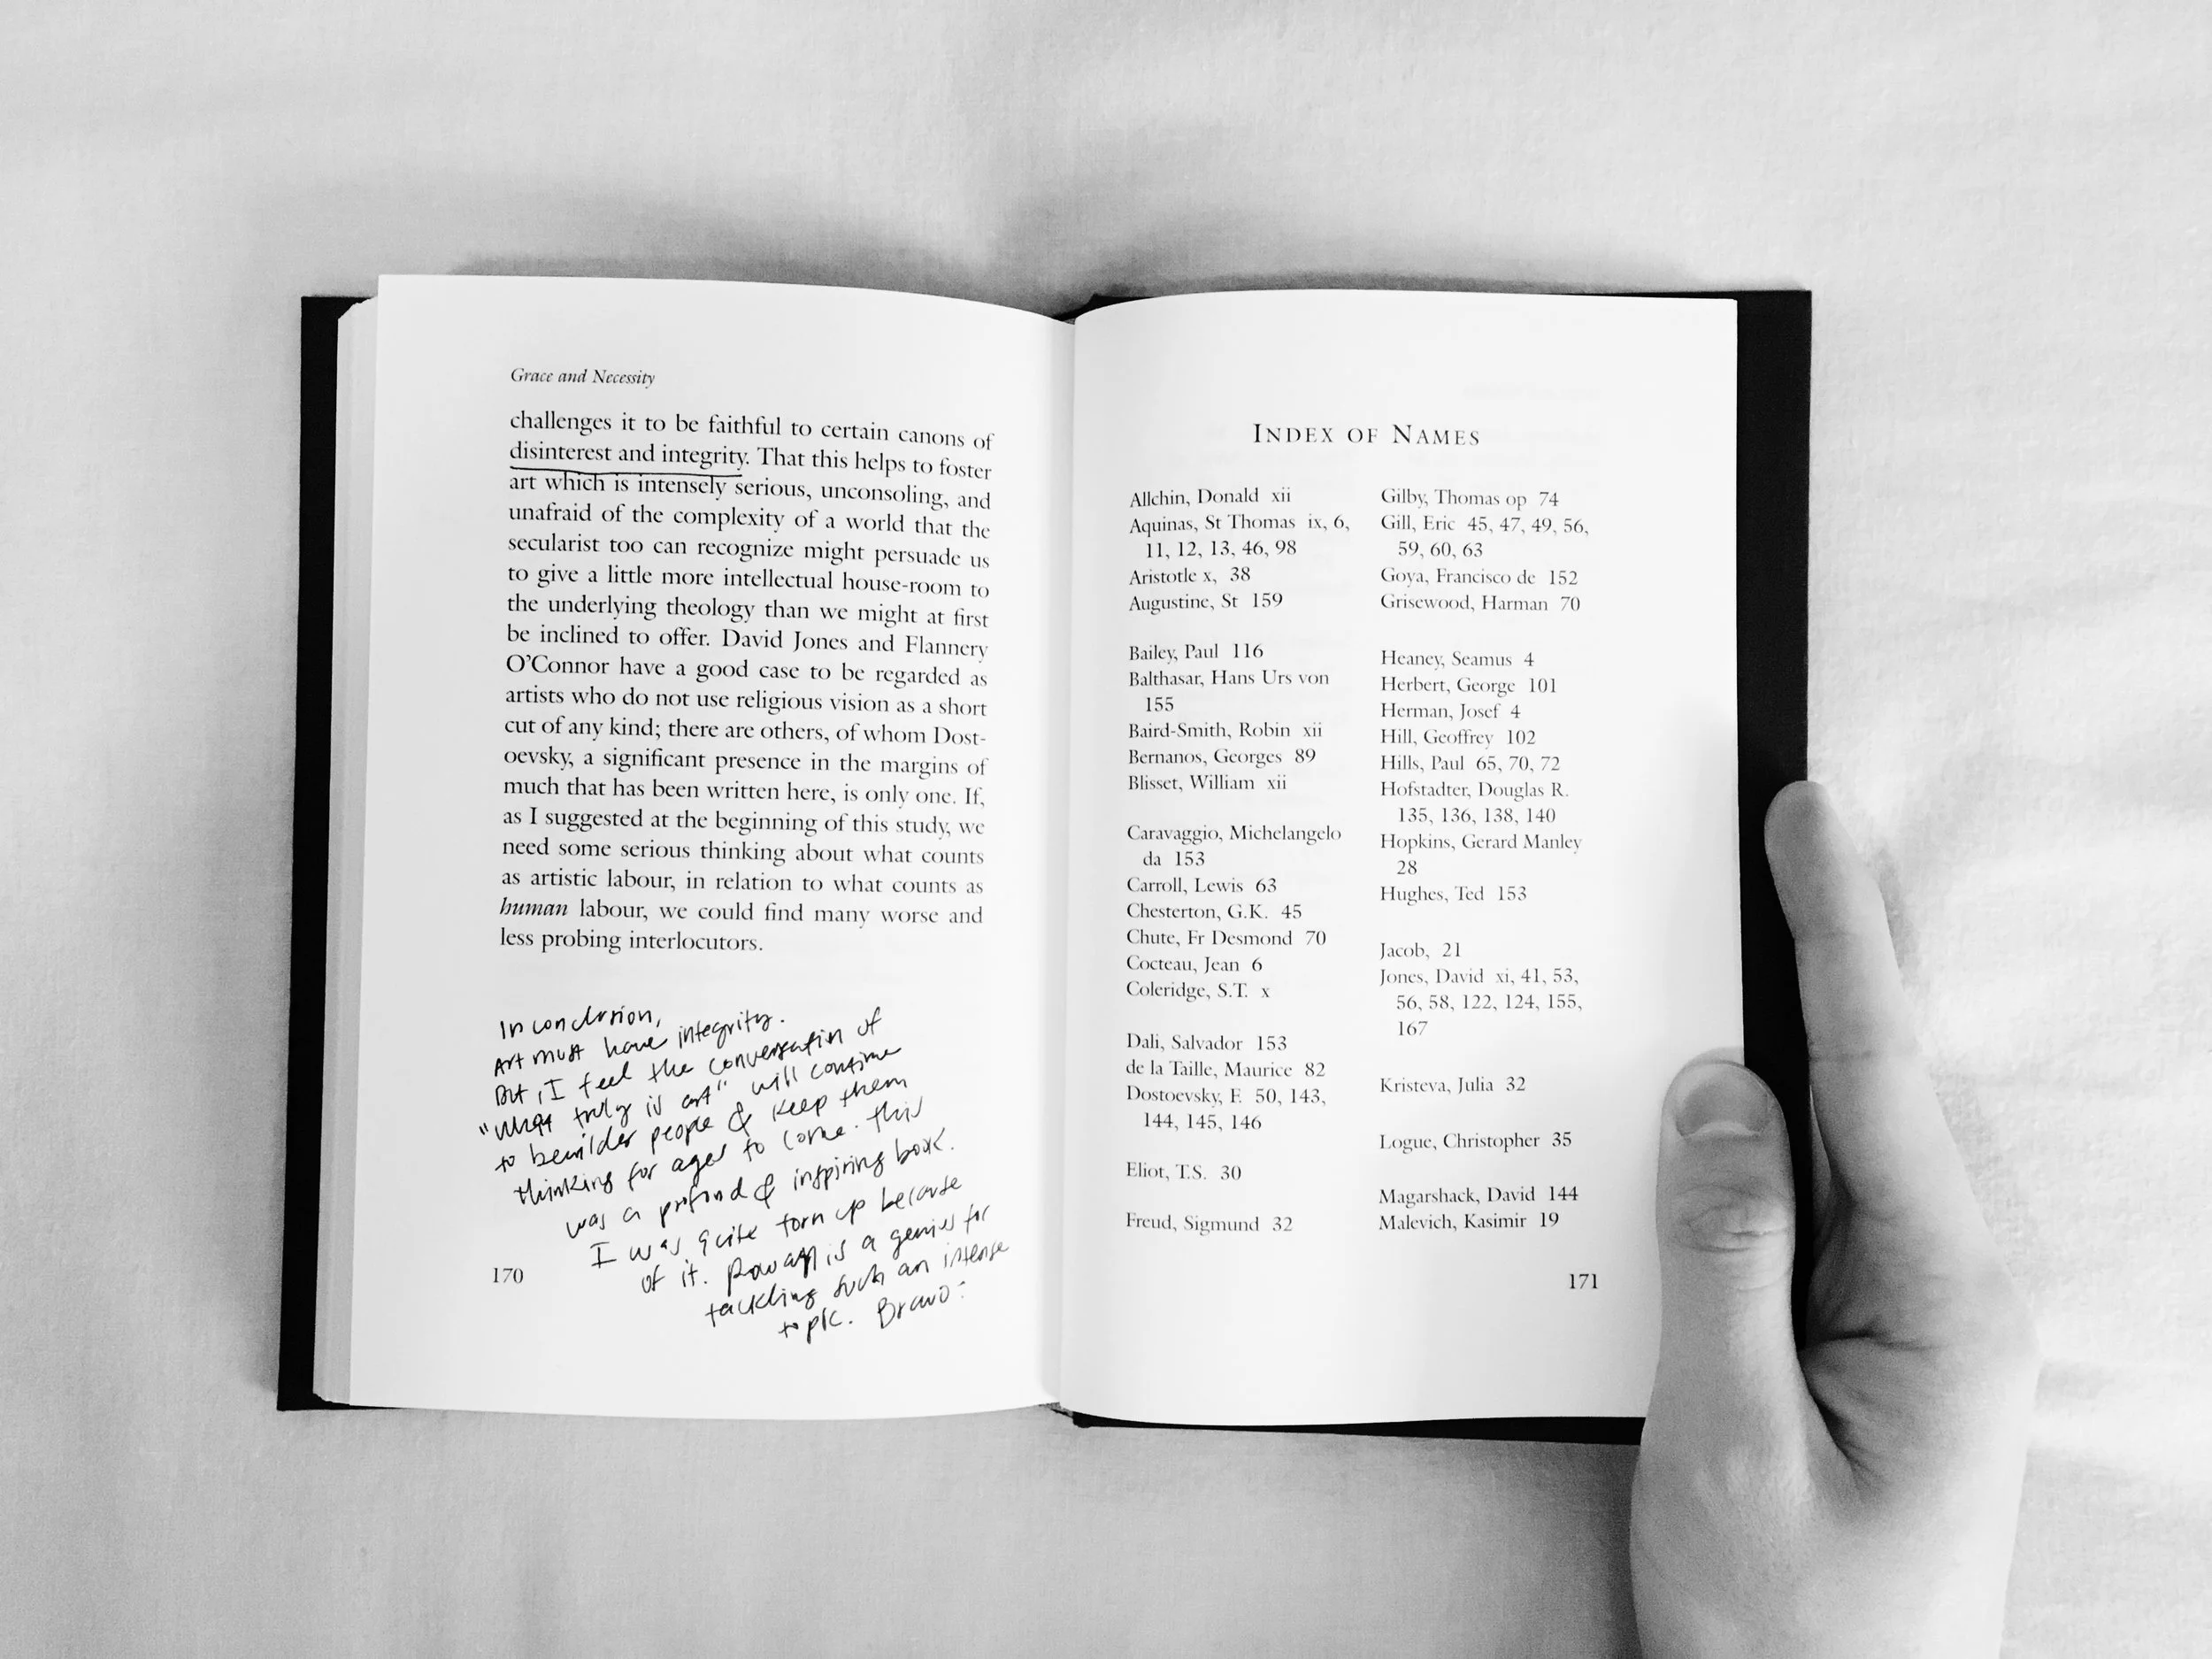 Grace and Necessity
challenges it to be faithful to certain canons of
disinterest and integrity. That this helps to foster
art which is intensely serious, unconsoling, and
unafraid of the complexity of a world that the
secularist too can recognize might persuade us
to give a little more intellectual house-room to
the underlying theology than we might at first
be inclined to offer. David Jones and Flannery
O'Connor have a good case to be regarded as
artists who do not use religious vision as a short
cut of any kind; there are others, of whom Dost-
oevsky, a significant presence in the margins of
much that has been written here, is only one. If,
as I suggested at the beginning of this study, we
need some serious thinking about what counts
as artistic labour, in relation to what counts as
human labour, we could find many worse and
less probing interlocutors.
In conclusion,
Art must have integrity.
But, I feel the conversation of
"what truly is art" will continue
to bewilder people & keep them
thinking for ages to come. This
was a profond & inspiring book.
I was quite torn up because
of it. Rowan is a genius for
tackling such an intense
topic. Bravo!
170
INDEX OF NAMES
Allchin, Donald xii
Aquinas, St Thomas ix, 6,
11, 12, 13, 46, 98
Aristotle x, 38
Augustine, St 159
Bailey, Paul 116
Balthasar, Hans Urs von
155
Baird-Smith, Robin xii
Bernanos, Georges 89
Blisset, William xii
Caravaggio, Michelangelo
da 153
Carroll, Lewis 63
Chesterton, G.K. 45
Chute, Fr Desmond 70
Cocteau, Jean 6
Coleridge, S.T. x
Dali, Salvador 153
de la Taille, Maurice 82
Dostoevsky, F. 50, 143,
144, 145, 146
Eliot, T.S. 30
Freud, Sigmund 32
Gilby, Thomas op 74
Gill, Eric 45, 47, 49, 56,
59, 60, 63
Goya, Francisco de 152
Grisewood, Harman 70
Heaney, Seamus 4
Herbert, George 101
Herman, Josef 4
Hill, Geoffrey 102
Hills, Paul 65, 70, 72
Hofstadter, Douglas R.
135, 136, 138, 140
Hopkins, Gerard Manley
28
Hughes, Ted 153
Jacob, 21
Jones, David xi, 41, 53,
56, 58, 122, 124, 155,
167
Kristeva, Julia 32
Logue, Christopher 35
Magarshack, David 144
Malevich, Kasimir 19
171